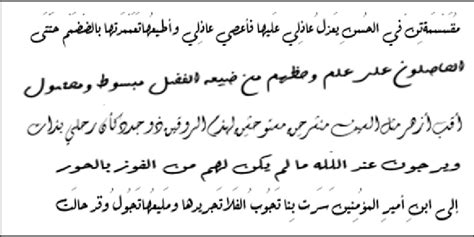 مُقَسَّمَةٌ فِي الحُسنِ يَعزِلُ عاذِلي عَلَيها فَأَعصي عاذِلي وَأُطيعُها بِالضَمِّ حَتّى
الحاصلون على علم وحظهم من ضيعه الفضل مبسوط ومحمول
أقب أزهر مثل السيف منشرجين مستوحشين لهدم الروقين ذو جدد كأن رحلي بذات
ويرجون عند الله ما لم يكن لهم من الفوز بالحور
إلى ابنِ أميرِ المؤمنينَ سَرَت بِنا تَجوبُ الفَلا تجريدها ومليعها تَجولُ وقد حالت